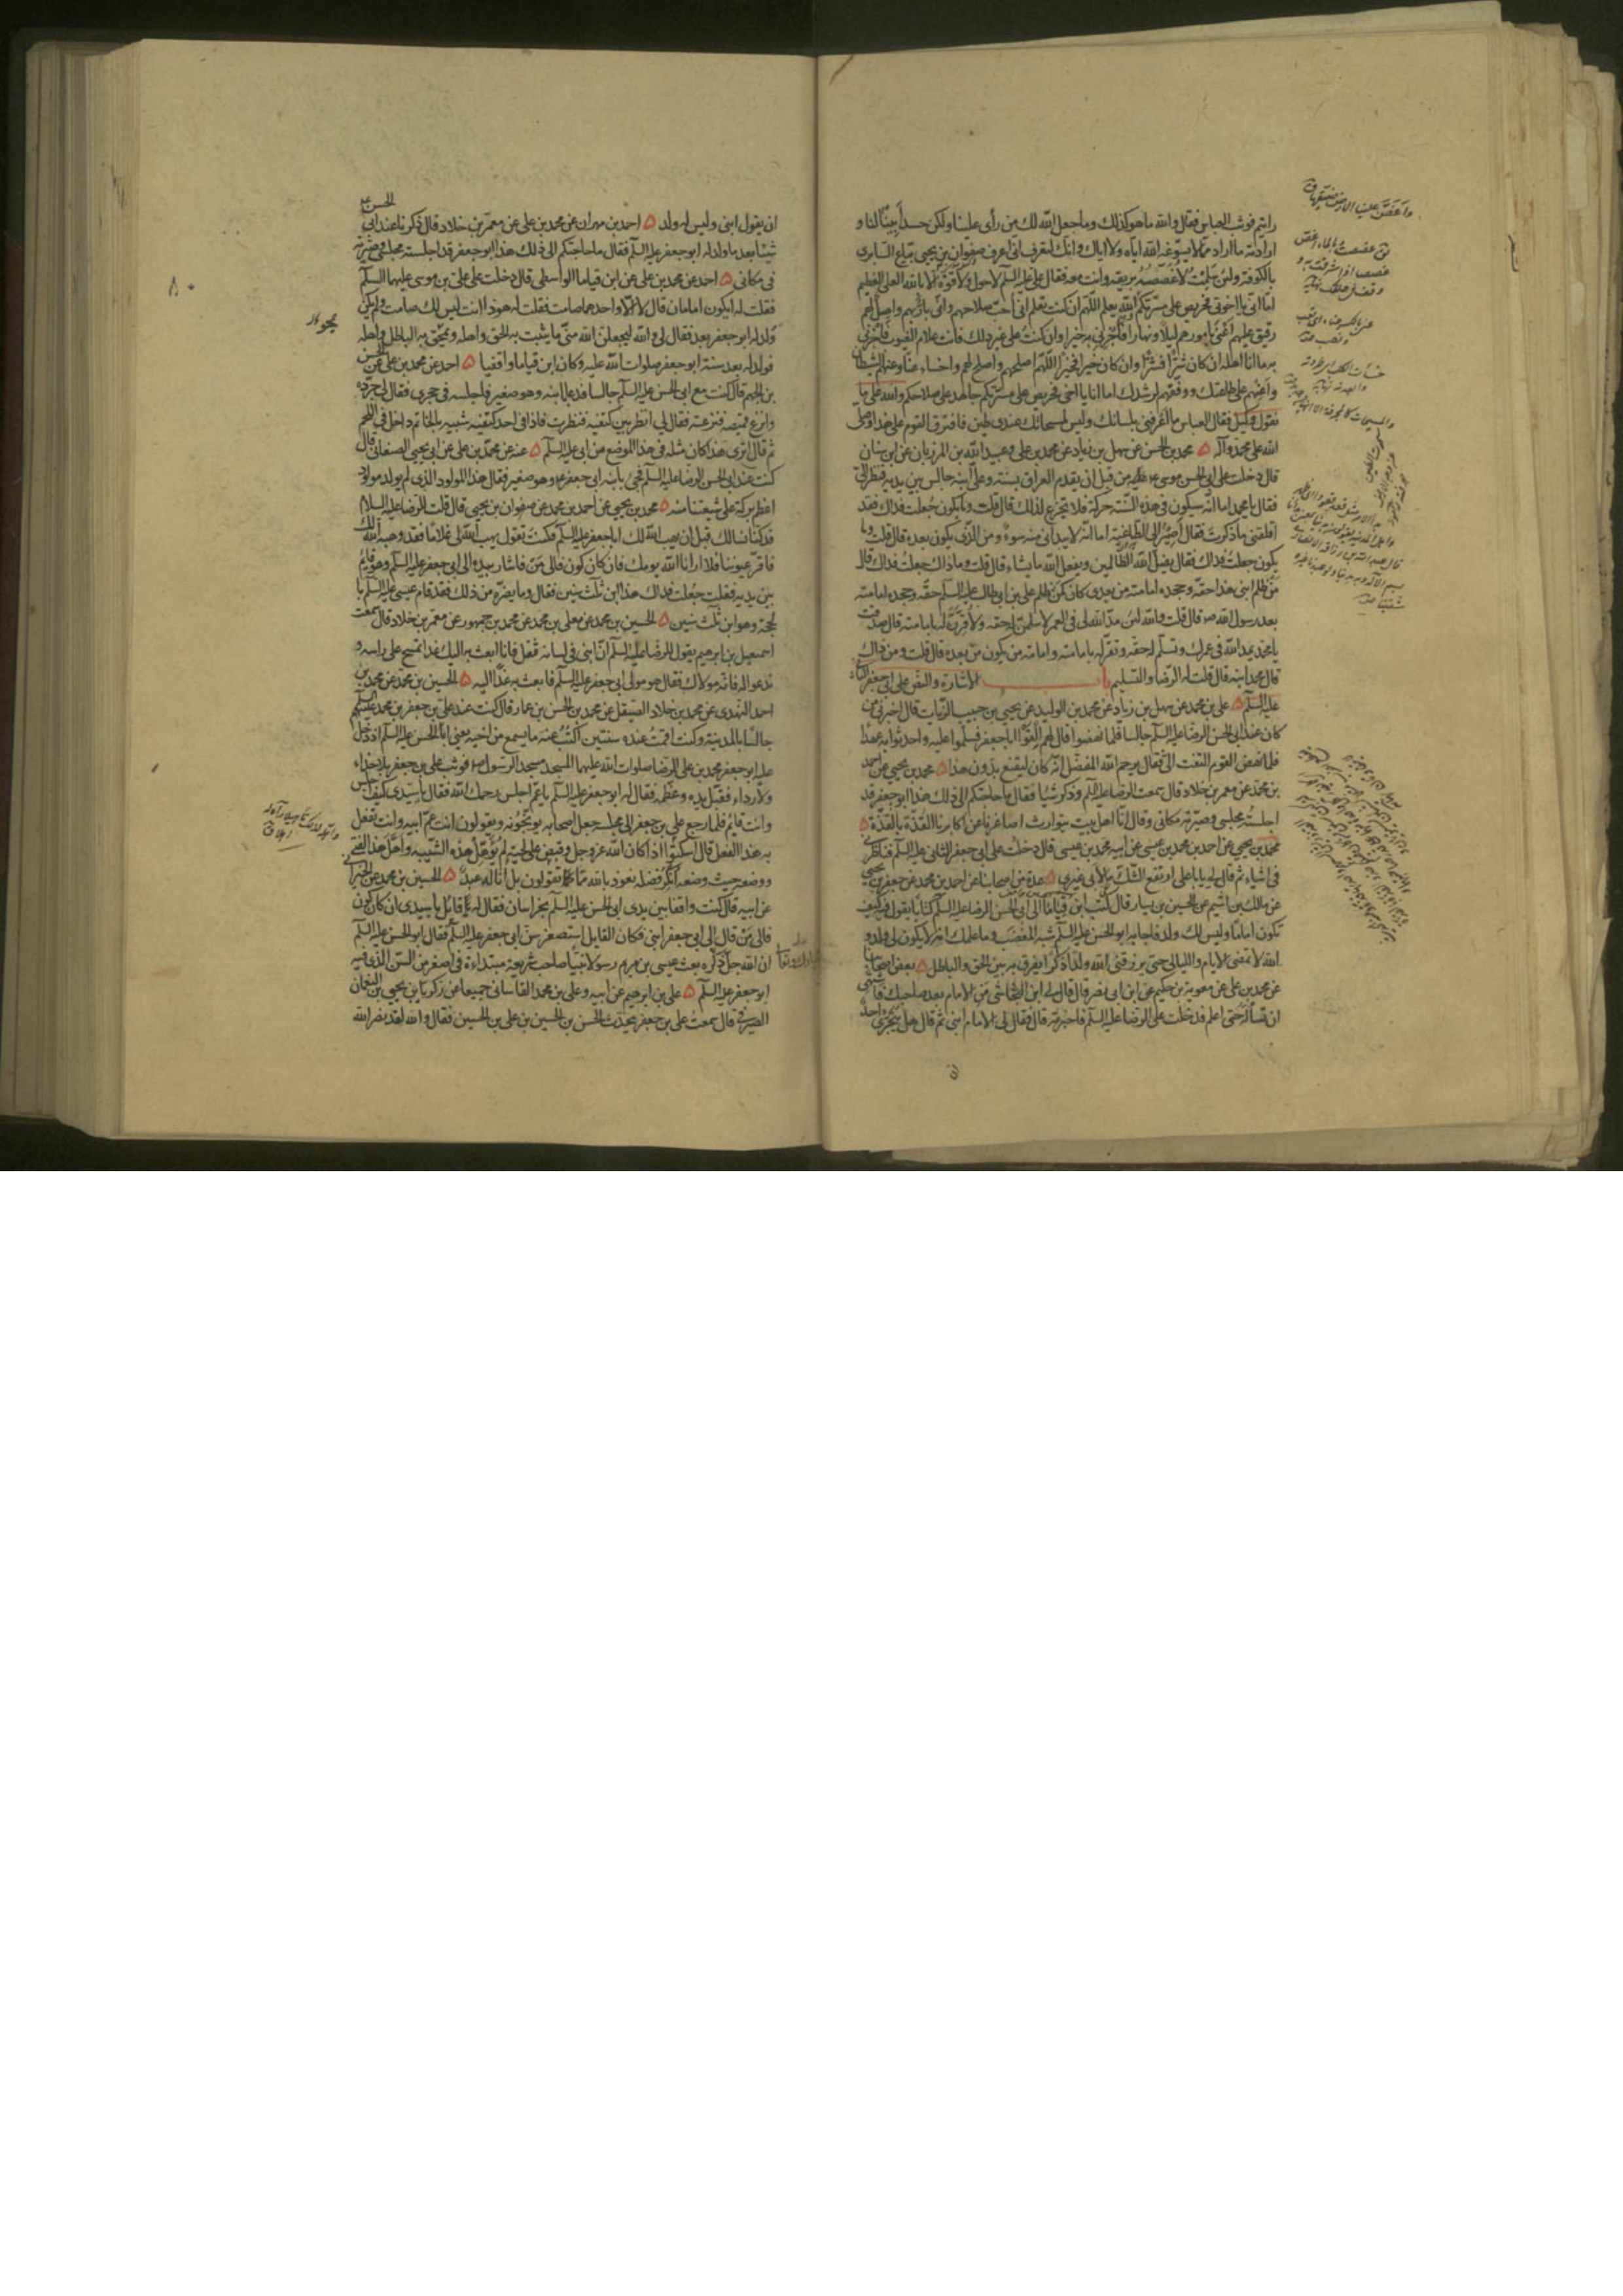 رايتم فوثب العباس فقال والله ما هو كذلك وما جعل الله لك من رأى علينا ولكن حسد أبينا لنا و
ارادته ما اراد مما لا يسوغه الله اياه ولا اياك وانك لتعرف انى اعرف صفوان بن يحيى بياع السابرى
بالكوفة ولئن سلمت لاغصصنه بريقه وانت معه فقال على عليه السلم لا حول ولا قوة الا بالله العلى العظيم
اما انى يا اخوتى فحريص على مسرتكم الله يعلم اللهم ان كنت تعلم انى احب صلاحهم وانى بار بهم واصل لهم
رفيق عليهم اعنى بامورهم ليلا ونهارا فاجزنى به خيرا وان كنت على غير ذلك فانت علام الغيوب فاجزنى
به ما انا اهله ان كان شرا فشرا وان كان خيرا فخيرا اللهم اصلحهم واصلح لهم واخساء عنا وعنهم الشيطان
واعنهم على طاعتك ووفقهم لرشدك اما انا يا اخى فحريص على مسرتكم جاهد على صلاحكم والله على ما
نقول وكيل فقال العباس ما اعرفنى بلسانك وليس لمسحاتك عندى طين فافترق القوم على هذا وصلى
الله على محمد وآله ۵ محمد بن الحسن عن سهل بن زياد عن محمد بن على وعبيد الله بن المرزبان عن ابن سنان
قال دخلت على ابى الحسن موسى من قبل ان يقدم العراق بسنة وعلى ابنه جالس بين يديه فنظر الى
فقال يا محمد اما انه سيكون فى هذه السنة حركة فلا تجزع لذلك قال قلت وما يكون جعلت فداك فقد
اقلقنى ما ذكرت فقال اصير الى الطاغية اما انه لا يبدانى منه سوء ومن الذى يكون بعده قال قلت وما
يكون جعلت فداك فقال يضل الله الظالمين ويفعل الله ما يشاء قال قلت وما ذاك جعلت فداك قال
من ظلم ابنى هذا حقه وجحده امامته من بعدى كان كمن ظلم على بن ابى طالب عليه السلم حقه وجحده امامته
بعد رسول الله صم قال قلت والله لئن مد الله لى فى العمر لاسلمن له حقه ولاقرن له بامامته قال صدقت
يا محمد يمد الله فى عمرك وتسلم له حقه وتقر له بامامته وامامة من يكون من بعده قال قلت ومن ذاك
قال محمد ابنه قال قلت له الرضا والتسليم باب الاشارة والنص على ابى جعفر الثانى
عليه السلم ۵ على بن محمد عن سهل بن زياد عن محمد بن الوليد عن يحيى بن حبيب الزيات قال اخبرنى من
كان عند ابى الحسن الرضا عليه السلم جالسا فلما نهضوا قال لهم القوا ابا جعفر فسلموا عليه واحدثوا به عهدا
فلما نهض القوم التفت الى فقال يرحم الله المفضل انه كان ليقنع بدون هذا ۵ محمد بن يحيى عن احمد
بن محمد عن معمر بن خلاد قال سمعت الرضا عليه السلم وذكر شيئا فقال ما حاجتكم الى ذلك هذا ابو جعفر قد
اجلسته مجلسى وصيرته مكانى وقال انا اهل بيت يتوارث اصاغرنا عن اكابرنا القذة بالقذة ۵
محمد بن يحيى عن احمد بن محمد بن عيسى عن ابيه محمد بن عيسى قال دخلت على ابى جعفر الثانى عليه السلم فناظرنى
فى اشياء ثم قال لى يا با على ارتفع الشك ما لابى غيرى ۵ عدة من اصحابنا عن احمد بن محمد عن جعفر بن يحيى
عن مالك بن اشيم عن الحسين بن يسار قال كتب ابن قياما الى ابى الحسن الرضا عليه السلم كتابا يقول فيه كيف
تكون اماما وليس لك ولد فاجابه ابو الحسن عليه السلم شبه المغضب وما علمك انه لا يكون لى ولد و
الله لا تمضى الايام والليالى حتى يرزقنى الله ولدا ذكرا يفرق به بين الحق والباطل ۵ بعض اصحابنا
عن محمد بن على عن معوية بن حكيم عن ابن ابى نصر قال قال لى ابن النجاشى من الامام بعد صاحبك فاشتهى
ان تسأله حتى اعلم فدخلت على الرضا عليه السلم فاخبرته قال فقال لى الامام ابنى ثم قال هل يجترى احد
ان يقول ابنى وليس له ولد ۵ احمد بن مهران عن محمد بن على عن معمر بن خلاد قال ذكرنا عند ابى الحسن
شيئا بعد ما ولد له ابو جعفر عليه السلم فقال ما حاجتكم الى ذلك هذا ابو جعفر قد اجلسته مجلسى وصيرته
فى مكانى ۵ احمد عن محمد بن على عن ابن قياما الواسطى قال دخلت على على بن موسى عليهما السلم
فقلت له ايكون امامان قال لا الا واحدهما صامت فقلت له هوذا انت ليس لك صامت ولم يكن
ولد له ابو جعفر بعد فقال لى والله ليجعلن الله منى ما يثبت به الحق واهله ويمحق به الباطل واهله
فولد له بعد سنة ابو جعفر صلوات الله عليه وكان ابن قياما واقفيا ۵ احمد عن محمد بن على عن الحسن
بن الجهم قال كنت مع ابى الحسن عليه السلم جالسا فدعا بابنه وهو صغير فاجلسه فى حجرى فقال لى جرده
وانزع قميصه فنزعته فقال لى انظر بين كتفيه فنظرت فاذا فى احد كتفيه شبيه بالخاتم داخل فى اللحم
ثم قال اترى هذا كان مثله فى هذا الموضع من ابى عليه السلم ۵ عنه عن محمد بن على عن ابى يحيى الصنعانى قال
كنت عند ابى الحسن الرضا عليه السلم فجئ بابنه ابى جعفر وهو صغير فقال هذا المولود الذى لم يولد مولود
اعظم بركة على شيعتنا منه ۵ محمد بن يحيى عن احمد بن محمد عن صفوان بن يحيى قال قلت للرضا عليه السلام
قد كنا نسالك قبل ان يهب الله لك ابا جعفر عليه السلم فكنت تقول يهب الله لى غلاما فقد وهبه الله لك
فاقر عيوننا فلا ارانا الله يومك فان كان كون فالى من فاشار بيده الى ابى جعفر عليه السلم وهو قايم
بين يديه فقلت جعلت فداك هذا ابن ثلث سنين فقال وما يضره من ذلك فقد قام عيسى عليه السلم با
لحجة وهو ابن ثلث سنين ۵ الحسين بن محمد عن معلى بن محمد عن محمد بن جمهور عن معمر بن خلاد قال سمعت
اسمعيل بن ابرهيم يقول للرضا عليه السلم ان ابنى فى لسانه ثقل فانا ابعث به اليك غدا تمسح على راسه و
تدعو له فانه مولاك فقال هو مولى ابى جعفر عليه السلم فابعث به غدا اليه ۵ الحسين بن محمد عن محمد بن
احمد النهدى عن محمد بن خلاد الصيقل عن محمد بن الحسن بن عمار قال كنت عند على بن جعفر بن محمد عليهم السلم
جالسا بالمدينة وكنت اقمت عنده سنتين اكتب عنه ما يسمع من اخيه يعنى ابا الحسن عليه السلم اذ دخل
عليه ابو جعفر محمد بن على الرضا صلوات الله عليهما المسجد مسجد الرسول صم فوثب على بن جعفر بلا حذاء
ولا رداء فقبل يده وعظمه فقال له ابو جعفر عليه السلم يا عم اجلس رحمك الله فقال يا سيدى كيف اجلس
وانت قايم فلما رجع على بن جعفر الى مجلسه جعل اصحابه يوبخونه ويقولون انت عم ابيه وانت تفعل
به هذا الفعل قال اسكتوا اذا كان الله عز وجل وقبض على لحيته لم يؤهل هذه الشيبة واهل هذا الفتى
ووضعه حيث وضعه انكر فضله نعوذ بالله مما تقولون بل انا له عبد ۵ الحسين بن محمد عن الخيرانى
عن ابيه قال كنت واقفا بين يدى ابى الحسن عليه السلم بخراسان فقال له قائل يا سيدى ان كان كون
فالى من قال الى ابى جعفر ابنى فكان القايل استصغر سن ابى جعفر عليه السلم فقال ابو الحسن عليه السلم
ان الله جل ذكره بعث عيسى بن مريم رسولا نبيا صاحب شريعة مبتداءة فى اصغر من السن الذى فيه
ابو جعفر عليه السلم ۵ على بن ابرهيم عن ابيه وعلى بن محمد القاسانى جميعا عن زكريا بن يحيى بن النعمان
الصيرفى قال سمعت على بن جعفر يحدث الحسن بن الحسين بن على بن الحسين فقال والله لقد نصر الله